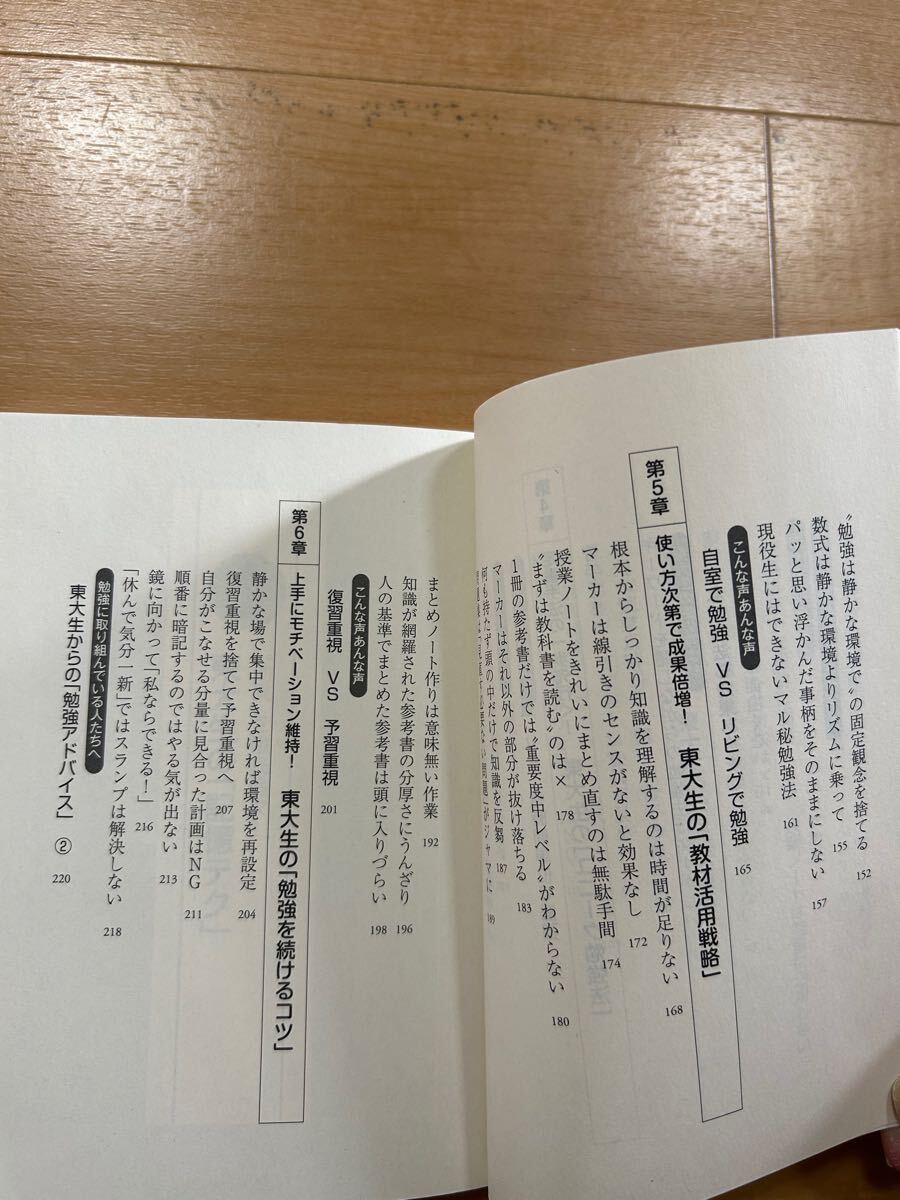 〝勉強は静かな環境で〟の固定観念を捨てる 152
数式は静かな環境よりリズムに乗って 155
パッと思い浮かんだ事柄をそのままにしない 157
現役生にはできないマル秘勉強法 161
こんな声あんな声
自室で勉強 VS リビングで勉強 165
第5章 使い方次第で成果倍増! 東大生の「教材活用戦略」
根本からしっかり知識を理解するのは時間が足りない 168
マーカーは線引きのセンスがないと効果なし 172
授業ノートをきれいにまとめ直すのは無駄手間 174
〝まずは教科書を読む〟のは× 178
1冊の参考書だけでは〝重要度中レベル〟がわからない 180
マーカーはそれ以外の部分が抜け落ちる 183
何も持たず頭の中だけで知識を反芻 187
189
まとめノート作りは意味無い作業 192
知識が網羅された参考書の分厚さにうんざり 196
人の基準でまとめた参考書は頭に入りづらい 198
こんな声あんな声
復習重視 VS 予習重視 201
第6章 上手にモチベーション維持! 東大生の「勉強を続けるコツ」
静かな場で集中できなければ環境を再設定 204
復習重視を捨てて予習重視へ 207
自分がこなせる分量に見合った計画はNG 211
順番に暗記するのではやる気が出ない 213
鏡に向かって「私ならできる!」 216
「休んで気分一新」ではスランプは解決しない 218
勉強に取り組んでいる人たちへ
東大生からの「勉強アドバイス」② 220